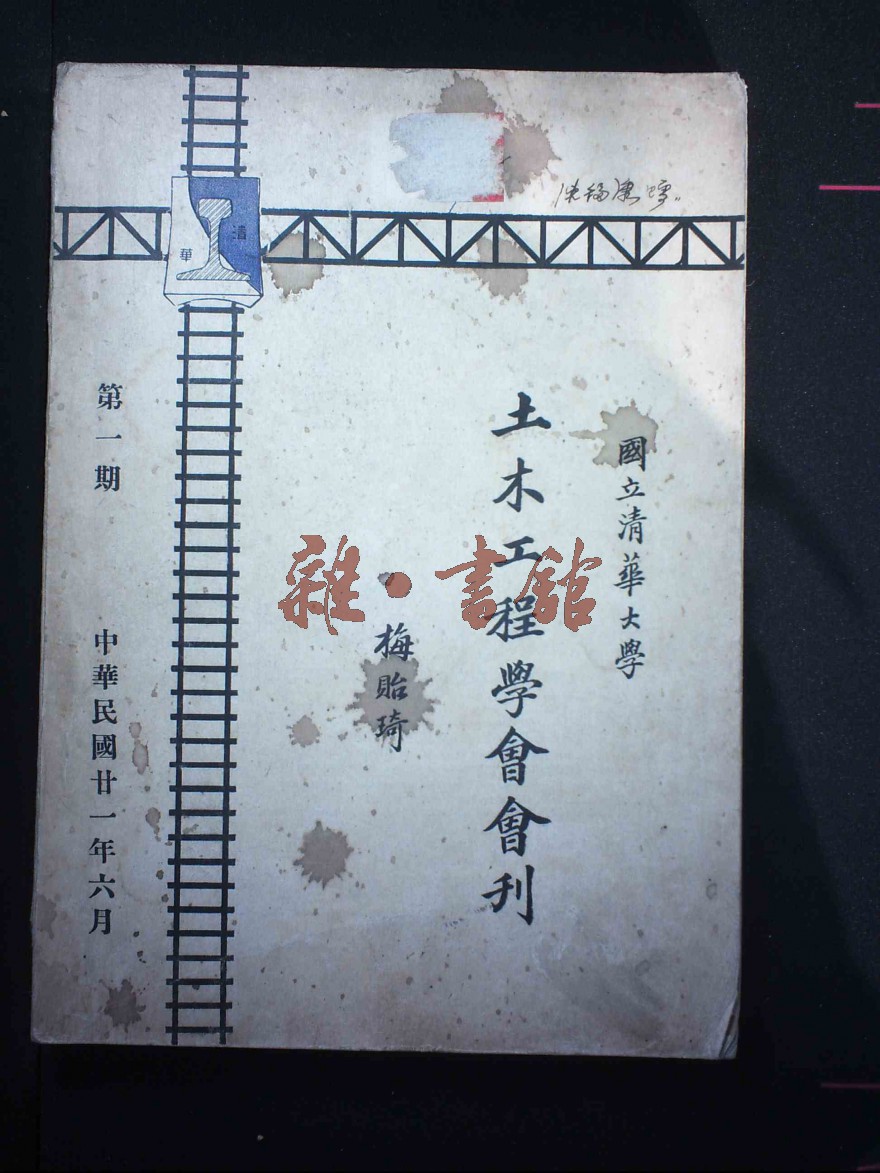 國立清華大學
土木工程學會會刊
梅貽琦
第一期
中華民國廿一年六月
清
華
雜·書館